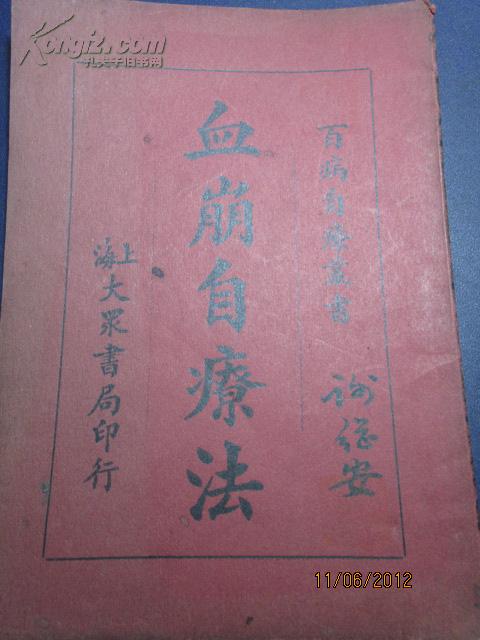 Kongfz.com
孔夫子旧书网
百病自療叢書
謝 安
血崩自療法
上海大眾書局印行
11/06/2012